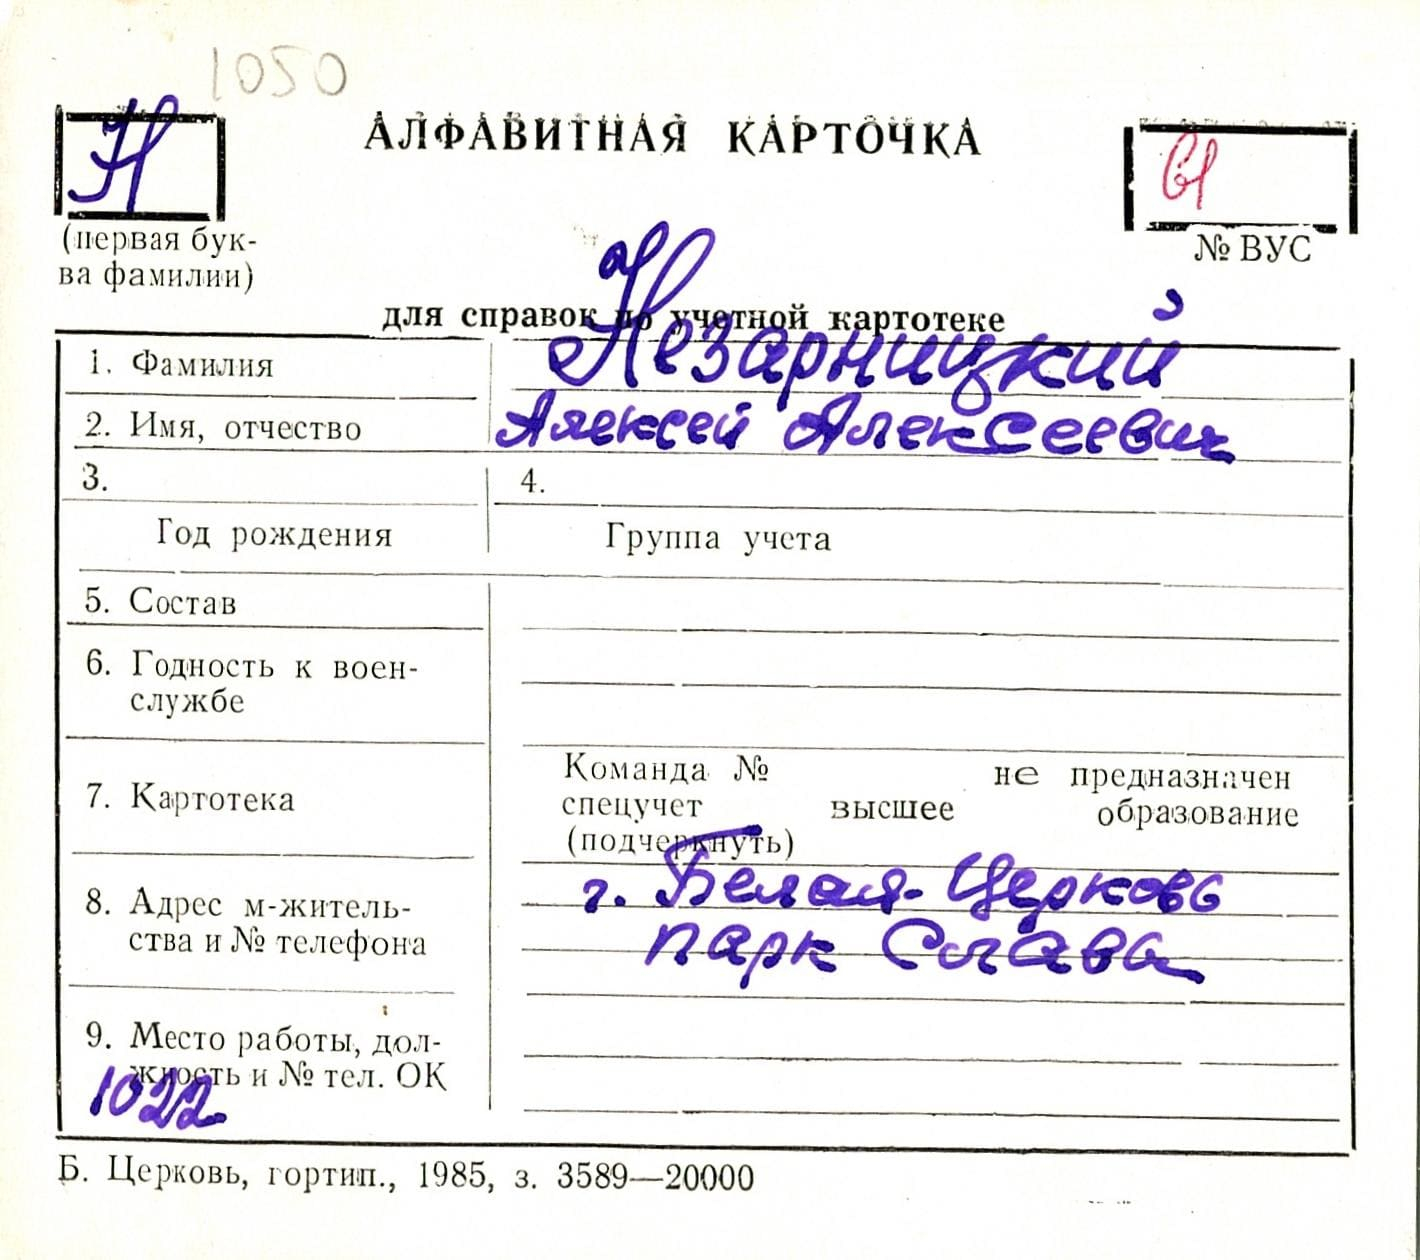 1050
Н
АЛФАВИТНАЯ КАРТОЧКА
(первая бук-
ва фамилии)
№ ВУС
для справок по учетной картотеке
1. Фамилия Незарницкий
2. Имя, отчество Алексей Алексеевич
3. 4.
Год рождения Группа учета
5. Состав
6. Годность к воен-
службе
Команда № не предназначен
7. Картотека спецучет высшее образование
(подчеркнуть)
8. Адрес м-житель- г. Белая-Церковь
ства и № телефона парк Слава
9. Место работы, дол-
жность и № тел. ОК
1022
Б. Церковь, гортип., 1985, з. 3589—20000